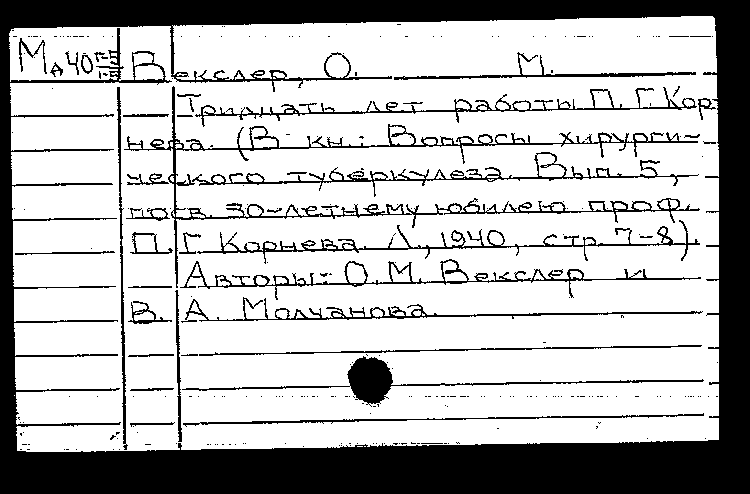 МА40 Векслер, О. М.
Тридцать лет работы П. Г. Кор-
нева. (В кн.: Вопросы хирурги-
ческого туберкулеза. Вып. 5,
посв. 30-летнему юбилею проф.
П. Г. Корнева. Л., 1940, стр. 7-8).
Авторы: О. М. Векслер и
В. А. Молчанова.